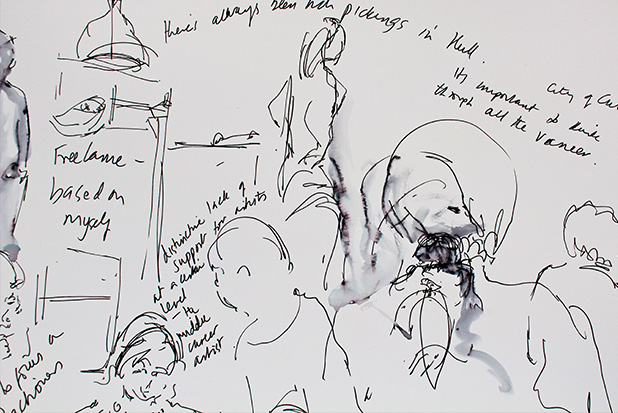 there's always been rich pickings in Hull.
City of Cu
its important to drive
through all the Vaneer.
Freelance -
based on
myself
distinctive lack of
support for artists
at a certain
level
- the
middle
career
artist
to focus a